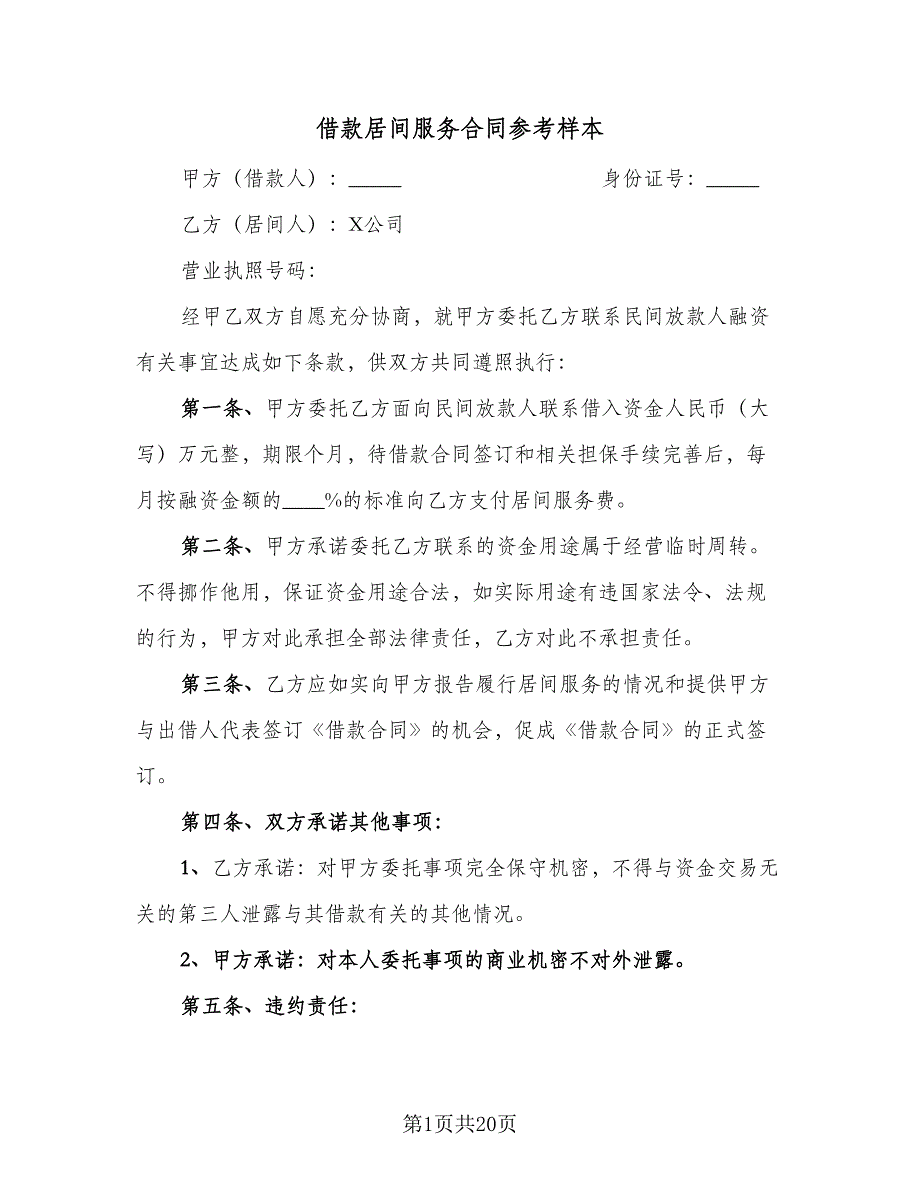 借款居间服务合同参考样本
甲方（借款人）：_____ 身份证号：_____
乙方（居间人）：X公司
营业执照号码：
经甲乙双方自愿充分协商，就甲方委托乙方联系民间放款人融资
有关事宜达成如下条款，供双方共同遵照执行：
第一条、甲方委托乙方面向民间放款人联系借入资金人民币（大
写）万元整，期限个月，待借款合同签订和相关担保手续完善后，每
月按融资金额的____%的标准向乙方支付居间服务费。
第二条、甲方承诺委托乙方联系的资金用途属于经营临时周转。
不得挪作他用，保证资金用途合法，如实际用途有违国家法令、法规
的行为，甲方对此承担全部法律责任，乙方对此不承担责任。
第三条、乙方应如实向甲方报告履行居间服务的情况和提供甲方
与出借人代表签订《借款合同》的机会，促成《借款合同》的正式签
订。
第四条、双方承诺其他事项：
1、乙方承诺：对甲方委托事项完全保守机密，不得与资金交易无
关的第三人泄露与其借款有关的其他情况。
2、甲方承诺：对本人委托事项的商业机密不对外泄露。
第五条、违约责任：
第1页共20页